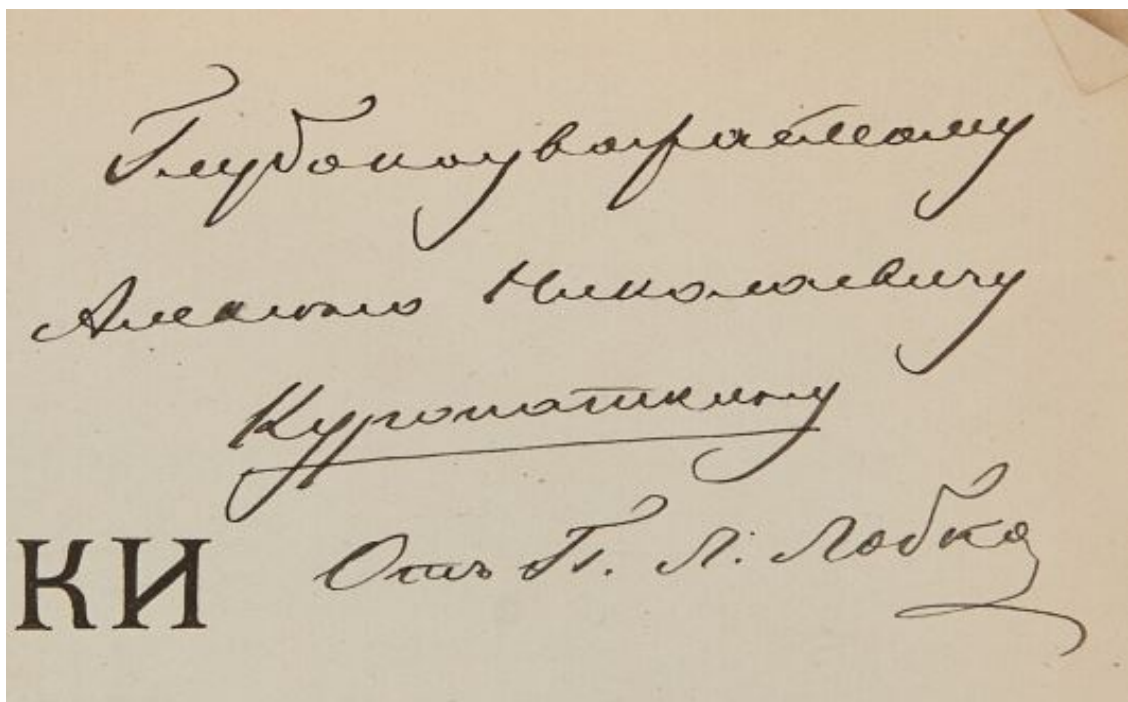 Глубокоуважаемому
Алексѣю Николаевичу
Куропаткину
КИ
Отъ П. Л. Лобко